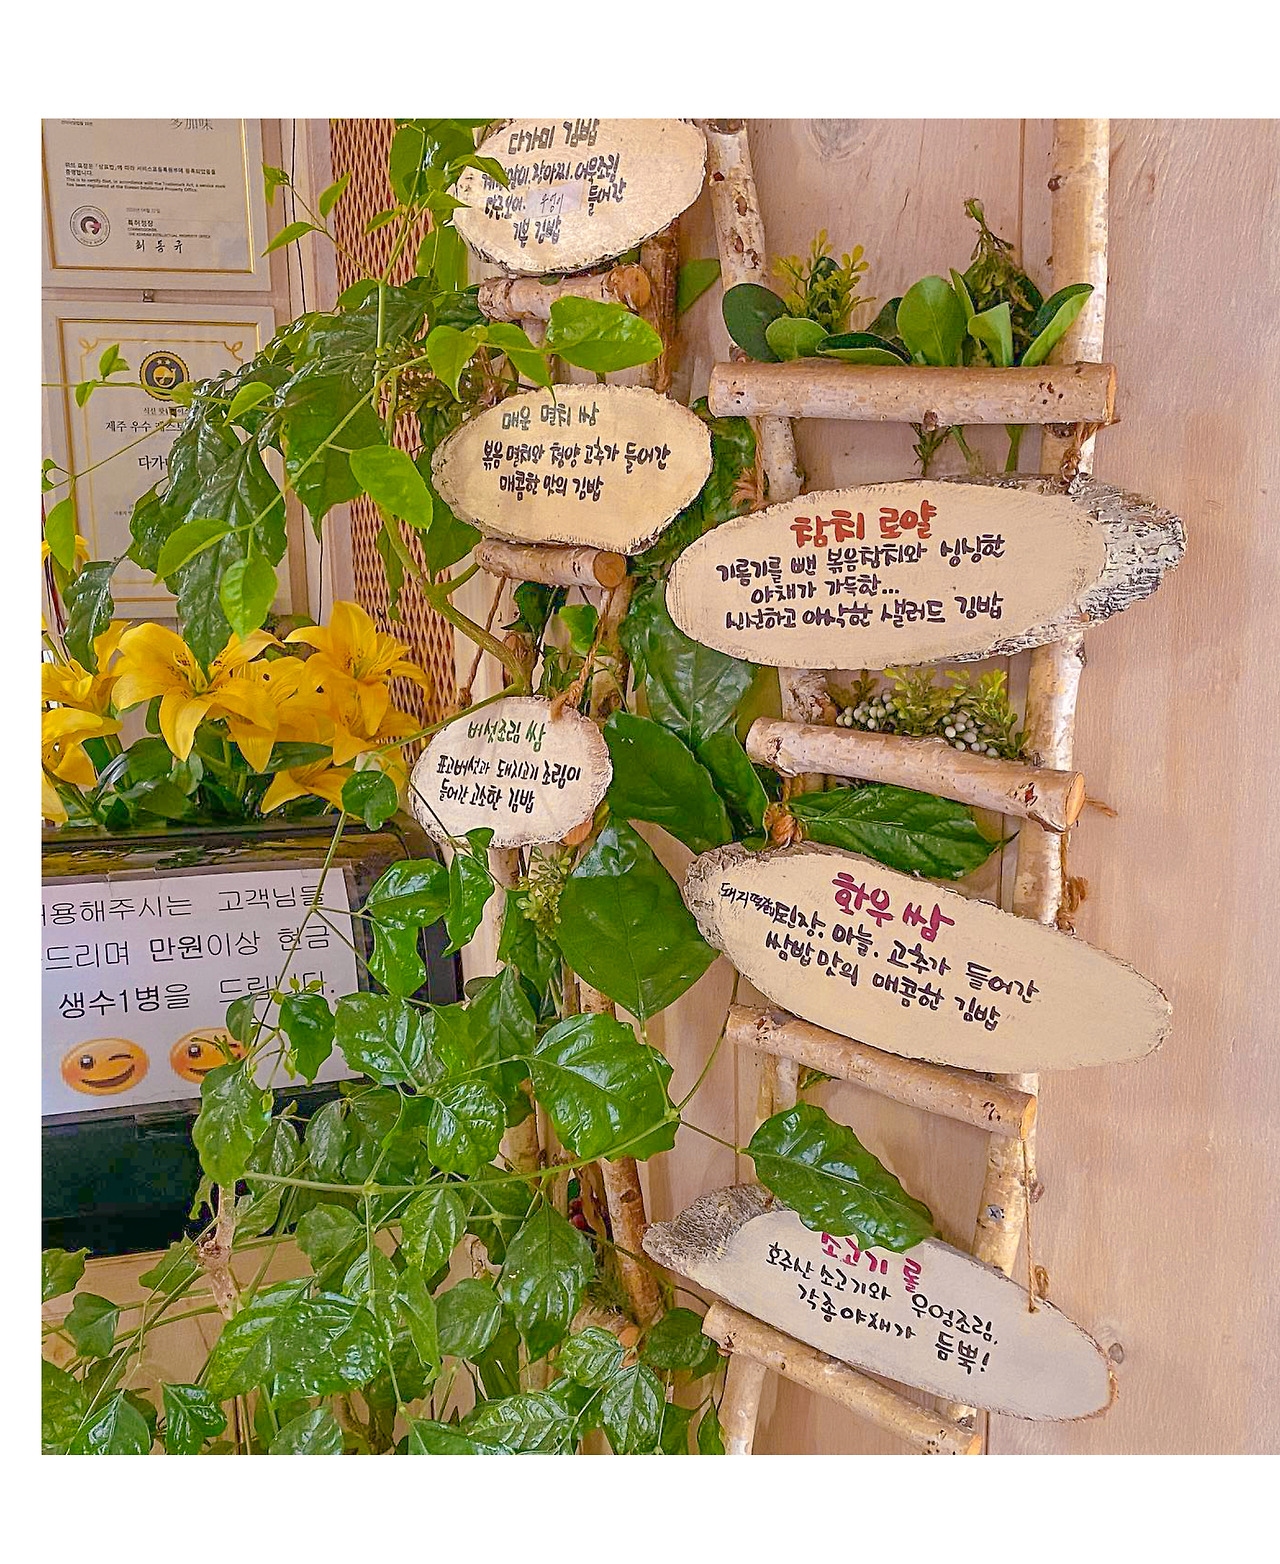 多加味
위의 표장은 「상표법」에 따라 서비스표등록원부에 등록되었음을
증명합니다.
This is to certify that, in accordance with the Trademark Act, a service mark
has been registered at the Korean Intellectual Property Office.
특허청장
COMMISSIONER,
THE KOREAN INTELLECTUAL PROPERTY OFFICE
최동규
제주 우수
다가
다가미 김밥
장아찌.어묵조림
들어간
기본 김밥
매운 멸치 쌈
볶음멸치와 청양 고추가 들어간
매콤한 맛의 김밥
버섯조림 쌈
표고버섯과 돼지고기 조림이
들어간 고소한 김밥
참치 로얄
기름기를 뺀 볶음참치와 싱싱한
야채가 가득한...
신선하고 아삭한 샐러드 김밥
화우 쌈
된장. 마늘. 고추가 들어간
쌈밥맛의 매콤한 김밥
소고기 롤
호주산 소고기와 우엉조림.
각종야채가 듬뿍!
용해주시는 고객님들
드리며 만원이상 현금
생수1병을 드립니다.